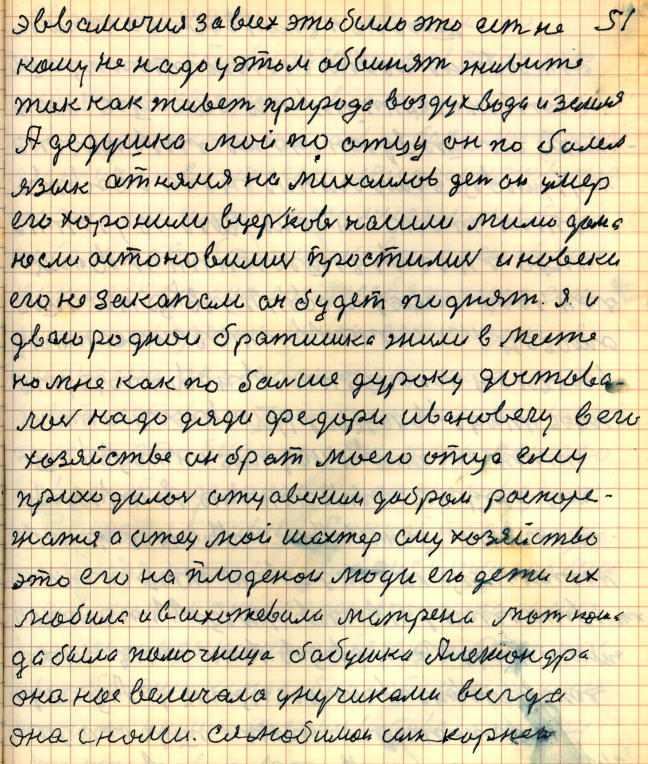 эввамичия завсех этобылло это ест не 51
кому не надо у этом обвинят живите
так как живет природа воздух вода и земля
А дедушка мой по отцу он по балел
язык атняля на михаилов ден он умер
его хоронили вцерковь насили мимо дома
насли астоновилис простилис и новеки
его не закапали он будет поднят. я и
дваюродной братишка жили в месте
но мне как по балше дураку достова-
лос надо дяди федори ивановечу в его
хозяйстве он брат моего отца ему
приходилос отцавским добром распоре-
жатя а отец мой шахтер ему хозяйство
это его на плоденои люди его дети их
любила и выхожевала матрена мат наша
да была памочница бабушка Александра
она нас величала унучиками всегда
она с нами. сльюбимои сын корней